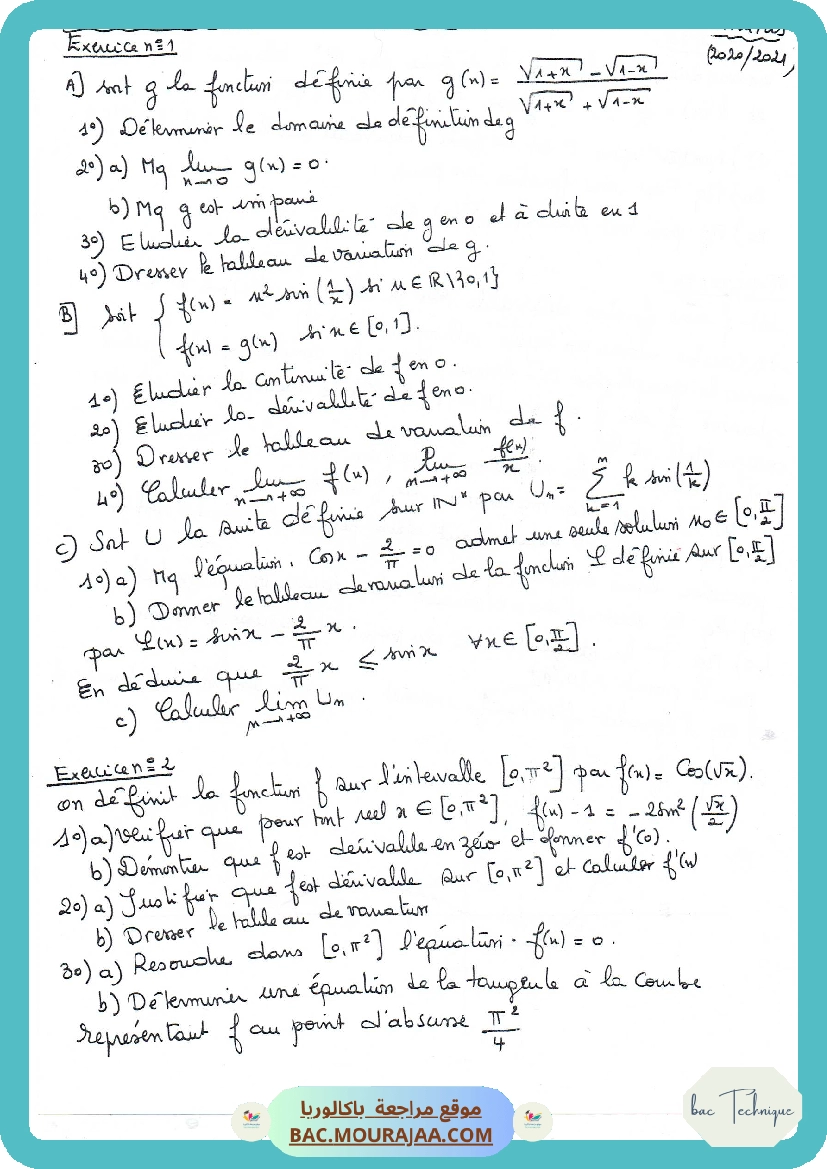 Exercice n°1
(2020/2021)
A] soit g la fonction définie par g(x) = (√1+x - √1-x) / (√1+x + √1-x)
1°) Déterminer le domaine de définition de g
2°) a) Mq lim x→0 g(x) = 0.
b) Mq g est impaire
3°) Etudier la dérivabilité de g en 0 et à droite en 1
4°) Dresser le tableau de variation de g.
B] Soit { f(x) = x² sin(1/x) si x ∈ ℝ\]0,1]
f(x) = g(x) si x ∈ [0,1].
1°) Etudier la continuité de f en 0.
2°) Etudier la dérivabilité de f en 0.
3°) Dresser le tableau de variation de f.
4°) Calculer lim x→+∞ f(x), lim x→+∞ f(x)/x.
C) Soit U la suite définie sur IN* par Un = Σ k=1 n k sin(1/k)
1°) a) Mq l'équation. Cosx - 2/π = 0 admet une seule solution x₀ ∈ [0,π/2]
b) Donner le tableau de variation de la fonction φ définie sur [0,π/2]
par φ(x) = sinx - 2/π x.
En déduire que 2/π x ≤ sinx ∀x ∈ [0,π/2].
c) Calculer lim n→+∞ Un.
Exercice n°2
on définit la fonction f sur l'intervalle [0,π²] par f(x) = Cos(√x).
1°) a) vérifier que pour tout réel x ∈ [0,π²], f(x) - 1 = -2sin²(√x/2)
b) Démontrer que f est dérivable en zéro et donner f'(0).
2°) a) Justifier que f est dérivable sur [0,π²] et calculer f'(x)
b) Dresser le tableau de variation
3°) a) Resoudre dans [0,π²] l'équation. f(x) = 0.
b) Déterminer une équation de la tangente à la courbe
représentant f au point d'abscisse π²/4
bac Technique
موقع مراجعة باكالوريا
BAC.MOURAJAA.COM